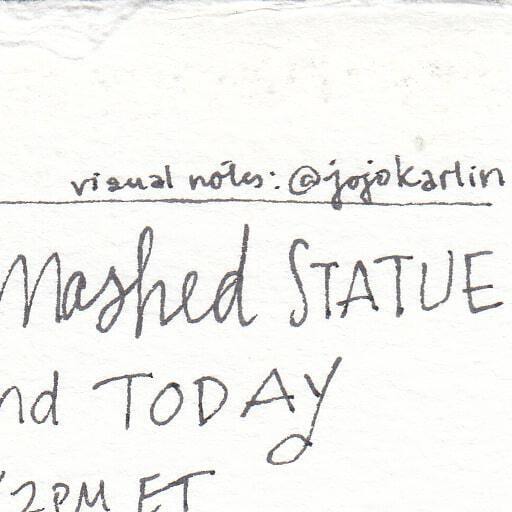 visual notes: @jojokarlin
mashed STATUE
nd TODAY
12PM ET